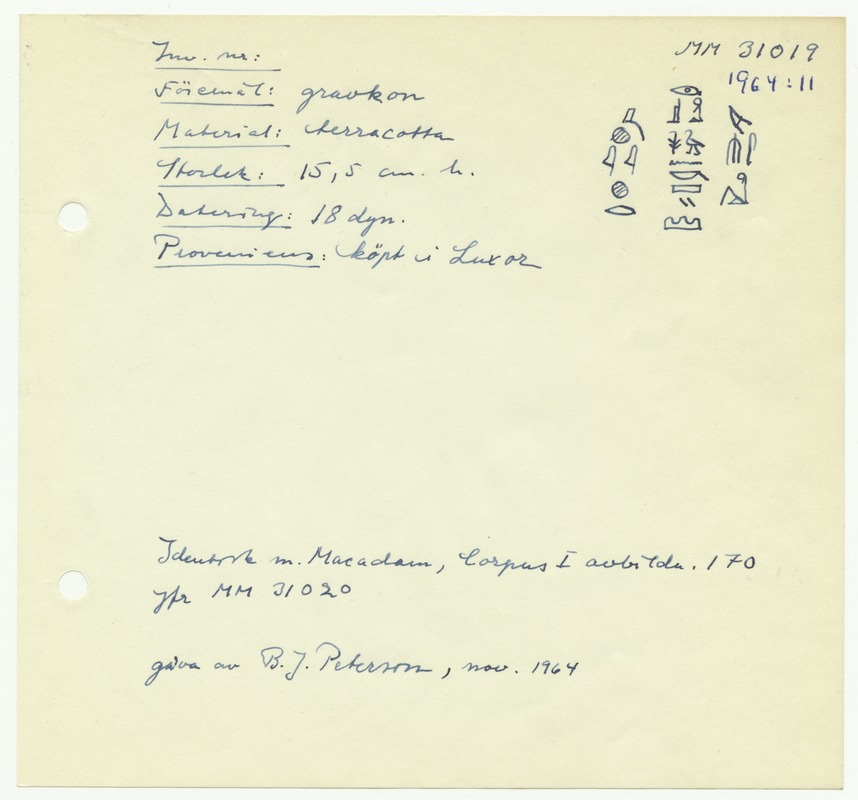 Inv. nr:
MM 31019
1964:11
Föremål: gravkon
Material: terracotta
Storlek: 15,5 cm. h.
Datering: 18 dyn.
Proveniens: köpt i Luxor
Identisk m. Macadam, Corpus I avbildn. 170
Jfr MM 31020
gåva av B.J. Peterson, nov. 1964